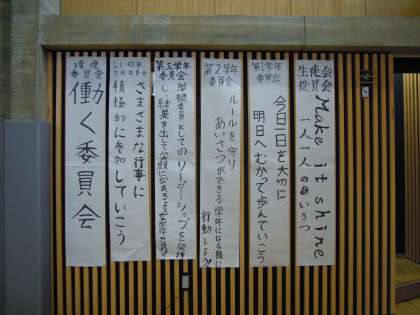 生徒会
委員会
Make it shine
一人一人のあいさつ
第1学年
委員会
今日一日を大切に
明日へむかって歩んでいこう
第2学年
委員会
ルールを守り
あいさつができる学年になる様に
行動しよう
第三学年
委員会
学級委員としてのリーダーシップを発揮
し、結果を出して笑顔になれる
委員会
さまざまな行事に
積極的に参加していこう
環境
委員会
働く委員会